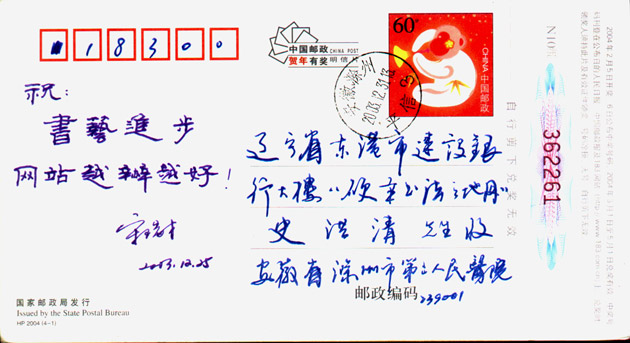 118300
中国邮政 CHINA POST
贺年有奖 明信片
60分
CHINA 中国邮政
2003.12.31.13
祝:
書藝進步
网站越辦越好!
2003.12.25
辽宁省东港市建設銀
行大樓《硬筆书法之地刊》
史洪清 先生收
安徽省滁州市第二人民醫院
邮政编码 239001
自行剪下兑奖无效
362261
国家邮政局发行
Issued by the State Postal Bureau
HP 2004 (4-1)